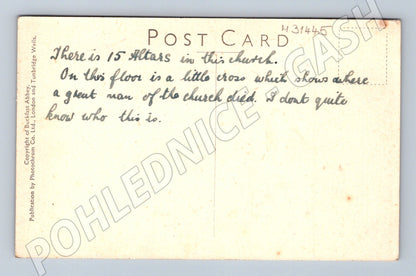 H31445
POST CARD
There is 15 Altars in this church.
On this floor is a little cross which shows where
a great man of the church died. I dont quite
know who this is.
Copyright of Buckfast Abbey.
Publication by Photochrom Co. Ltd., London and Tunbridge Wells.
POHLEDNICE - GASH